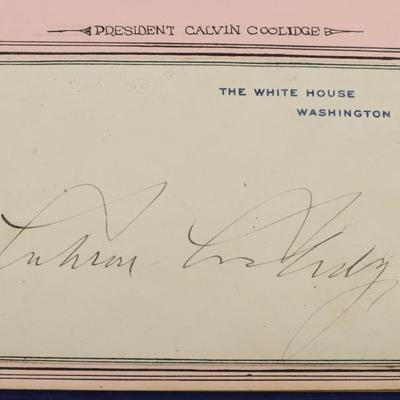 PRESIDENT CALVIN COOLIDGE
THE WHITE HOUSE
WASHINGTON
Calvin Coolidge